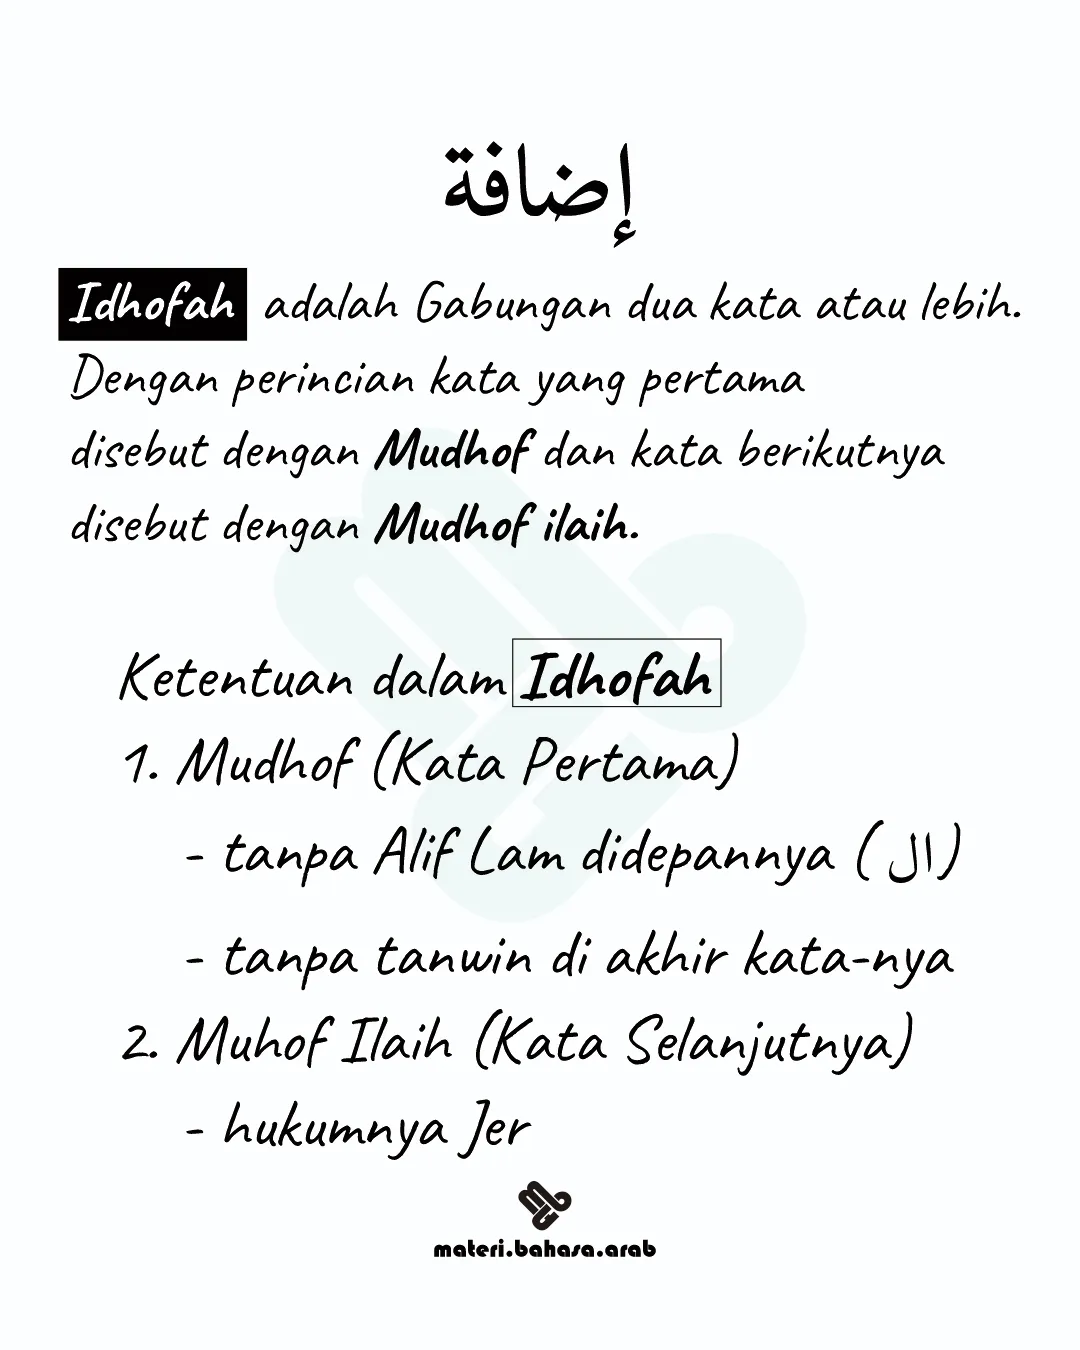 إضافة
Idhofah adalah Gabungan dua kata atau lebih.
Dengan perincian kata yang pertama
disebut dengan Mudhof dan kata berikutnya
disebut dengan Mudhof ilaih.
Ketentuan dalam Idhofah
1. Mudhof (Kata Pertama)
- tanpa Alif Lam didepannya (ال)
- tanpa tanwin di akhir kata-nya
2. Muhof Ilaih (Kata Selanjutnya)
- hukumnya Jer
materi.bahasa.arab